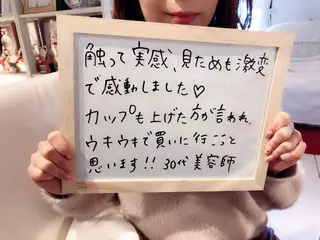 触って実感、見ためも激変
で感動しました♡
カップも上げた方が言われ、
ウキウキで買いに行こうと
思います!! 30代美容師